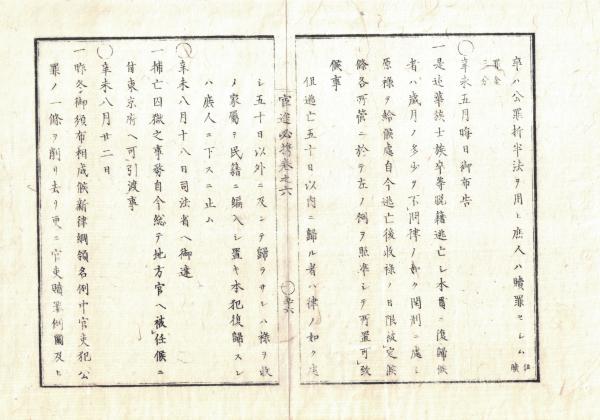 卒ハ公罪折半法ヲ用ヒ庶人ハ贖罪セシム但贖
罪金三分
辛未五月晦日御布告
一是迄華族士族卒等脱籍逃亡シ本貫ニ復歸候
者ハ歲月ノ多少ヲ不問律ノ如ク閏刑ニ處シ
原祿ヲ給候處自今逃亡後收祿ノ日限被定候
條各所管ニ於テ左ノ例ヲ照準シテ所置可致
候事
但逃亡五十日以内ニ歸ル者ハ律ノ如ク處
官途必携卷之六
シ五十日以外ニ及ンテ歸ラサレハ祿ヲ收
メ家屬ヲ民籍ニ編入シ置キ本犯復歸スレ
ハ庶人ニ下スニ止ム
辛未八月十八日司法省ヘ御達
一捕亡囚獄之事務自今總テ地方官ヘ被任候ニ
付東京府ヘ可引渡事
辛未八月廿二日
一昨冬御頒布相成候新律綱領名例中官吏犯公
罪ノ一條ヲ削リ去リ更ニ官吏贖罪例圖及ヒ